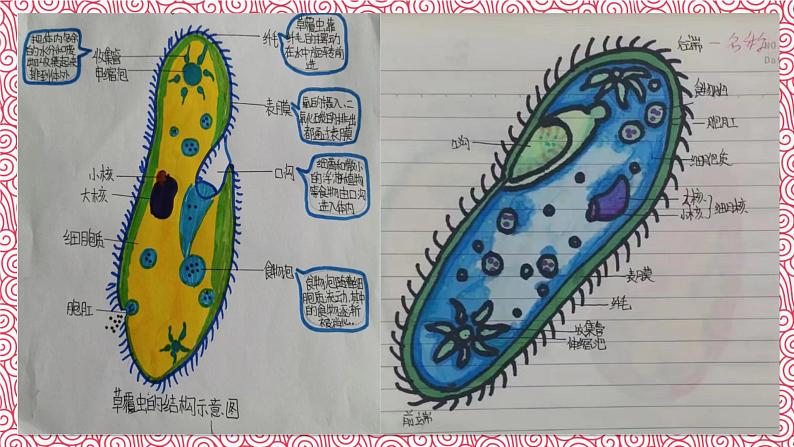 把体内多余
的水分和废
物收集起来
排到体外
收集管
伸缩泡
纤毛
草履虫靠
纤毛的摆动
在水中旋转前
进
表膜
氧的摄入、二
氧化碳的排出
都通过表膜
小核
大核
口沟
细菌和微小
的浮游植物
等食物由口沟
进入体内
细胞质
食物泡
食物泡随着细
胞质流动,其中
的食物逐渐
被消化。
胞肛
草履虫的结构示意图
后端
NO
Da
食物泡
胞肛
口沟
细胞质
大核
小核
细胞核
表膜
纤毛
收集管
伸缩泡
前端